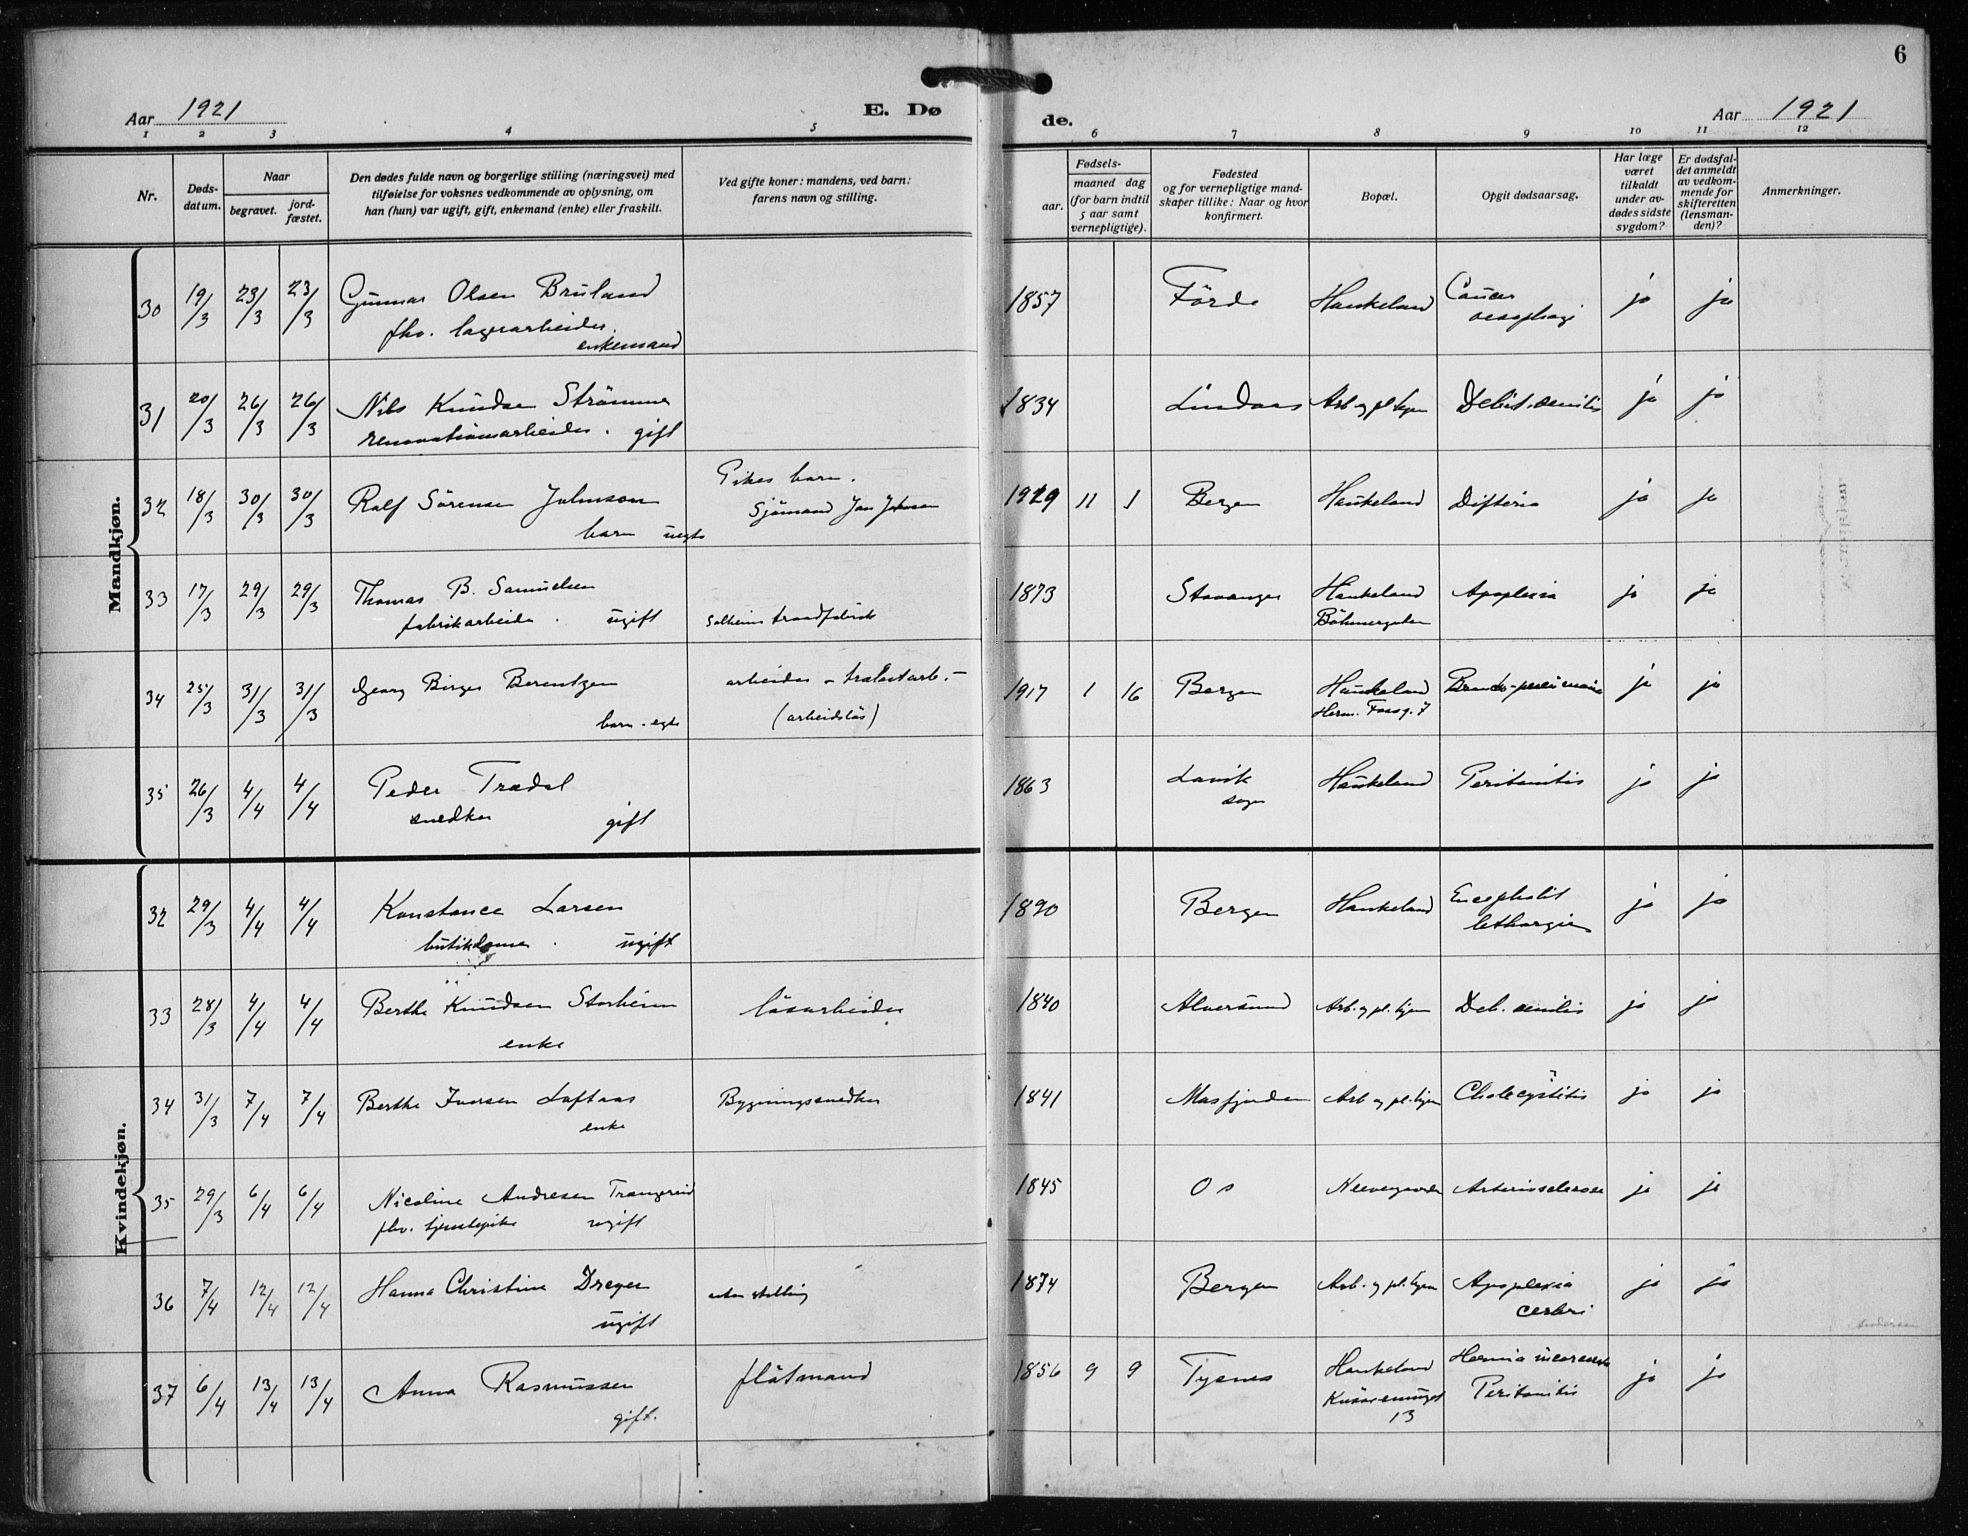 6
Aar 1921
E. Dø
de.
Aar 1921
1 2 3 4 5 6 7 8 9 10 11 12
Nr.
Døds-
datum.
Naar
begravet.
jord-
fæstet.
Den dødes fulde navn og borgerlige stilling (næringsvei) med
tilføielse for voksnes vedkommende av oplysning, om
han (hun) var ugift, gift, enkemand (enke) eller fraskilt.
Ved gifte koner: mandens, ved barn:
farens navn og stilling.
Fødsels-
aar.
maaned dag
(for barn indtil
5 aar samt
vernepligtige).
Fødested
og for vernepligtige mand-
skaper tillike: Naar og hvor
konfirmert.
Bopæl.
Opgit dødsaarsag.
Har læge
været
tilkaldt
under av-
dødes sidste
sygdom?
Er dødsfal-
det anmeldt
av vedkom-
mende for
skifteretten
(lensman-
den)?
Anmerkninger.
Mandkjøn.
30 19/3 23/3 23/3 Gunnar Olsen Bruland 1857 Förde Haukeland Cancer ja ja
fhv. lagerarbeider oesophagi
enkemand
31 20/3 26/3 26/3 Nils Knudsen Strömme 1834 Lindaas Arb og pl. hjem Debil. senilis ja ja
renovationsarbeider. gift
32 18/3 30/3 30/3 Rolf Sörensen Johnson Pikes barn. 1929 11 1 Bergen Haukeland Difteria ja ja
barn uegte Sjömand Jan Johnson
33 17/3 29/3 29/3 Thomas B. Samuelsen 1873 Stavanger Haukeland Apoplexia ja ja
fabrikarbeider. ugift Solheims traadfabrik Böhmergaten
34 25/3 31/3 31/3 Georg Birger Berentzen arbeider - 1917 1 16 Bergen Haukeland Broncho-pneumonia ja ja
barn. egte (arbeidslös) Herm. Fossg. 7
35 26/3 4/4 4/4 Peder Tradal 1863 Lavik Haukeland Peritonitis ja ja
snedker gift sogn
Kvindekjøn.
32 29/3 4/4 4/4 Konstance Larsen 1890 Bergen Haukeland Encephalit ja ja
butikdame. ugift lethargica
33 28/3 4/4 4/4 Berthe Knudsen Storheim lösarbeider 1840 Alversund Arb. og pl. hjem Deb. senilis ja ja
enke
34 31/3 7/4 7/4 Berthe Iversen Loftaas Bygningssnedker 1841 Masfjorden Arb og pl. hjem Cholecystitis ja ja
enke
35 29/3 6/4 6/4 Nicoline Andresen Trangereid 1845 Os Neevengaarden Arteriosclerose ja ja
fhv. tjenestepike ugift
36 7/4 12/4 12/4 Hanna Christine Dreyer uten stilling 1874 Bergen Arb. og pl. hjem Apoplexia ja ja
ugift cerebri
37 6/4 13/4 13/4 Anna Rasmussen flötmand 1856 9 9 Tysnes Haukeland Hernia incarcerata ja ja
gift. Peritonitis
13